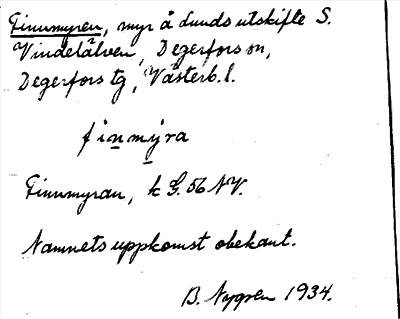 Finnmyren, myr å Lunds utskifte S.
Vindelälven, Degerfors sn,
Degerfors tg, Västerb. l.
finmýra
Finnmyran, k G. 56 NV.
Namnets uppkomst obekant.
B. Nygren 1934.